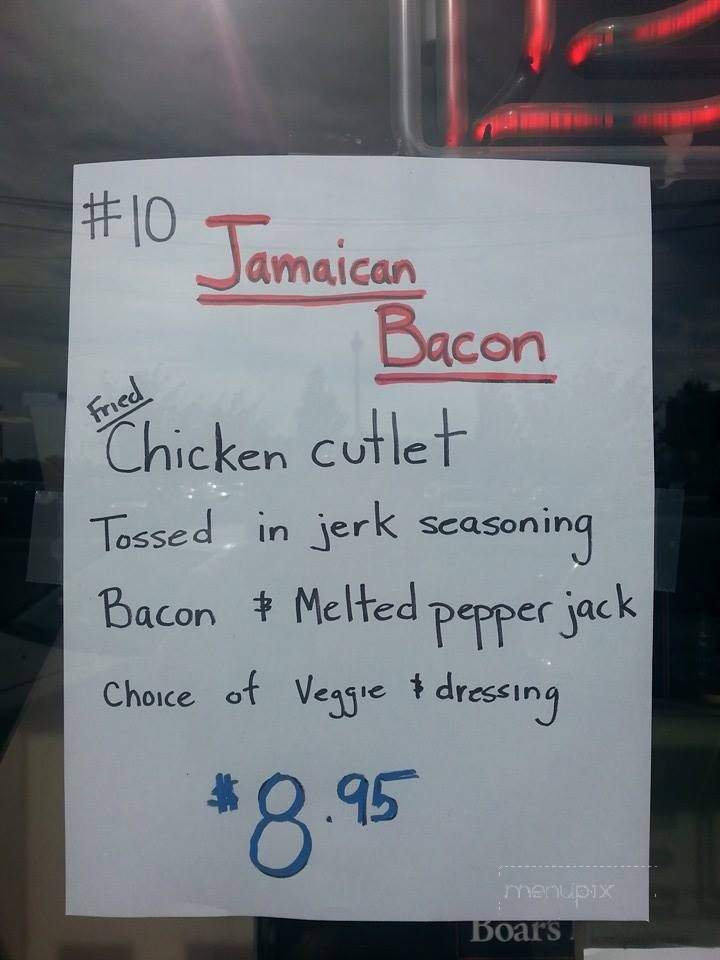 #10
Jamaican
Bacon
Fried
Chicken cutlet
Tossed in jerk seasoning
Bacon & Melted pepper jack
Choice of Veggie & dressing
$8.95
menupix
Boars